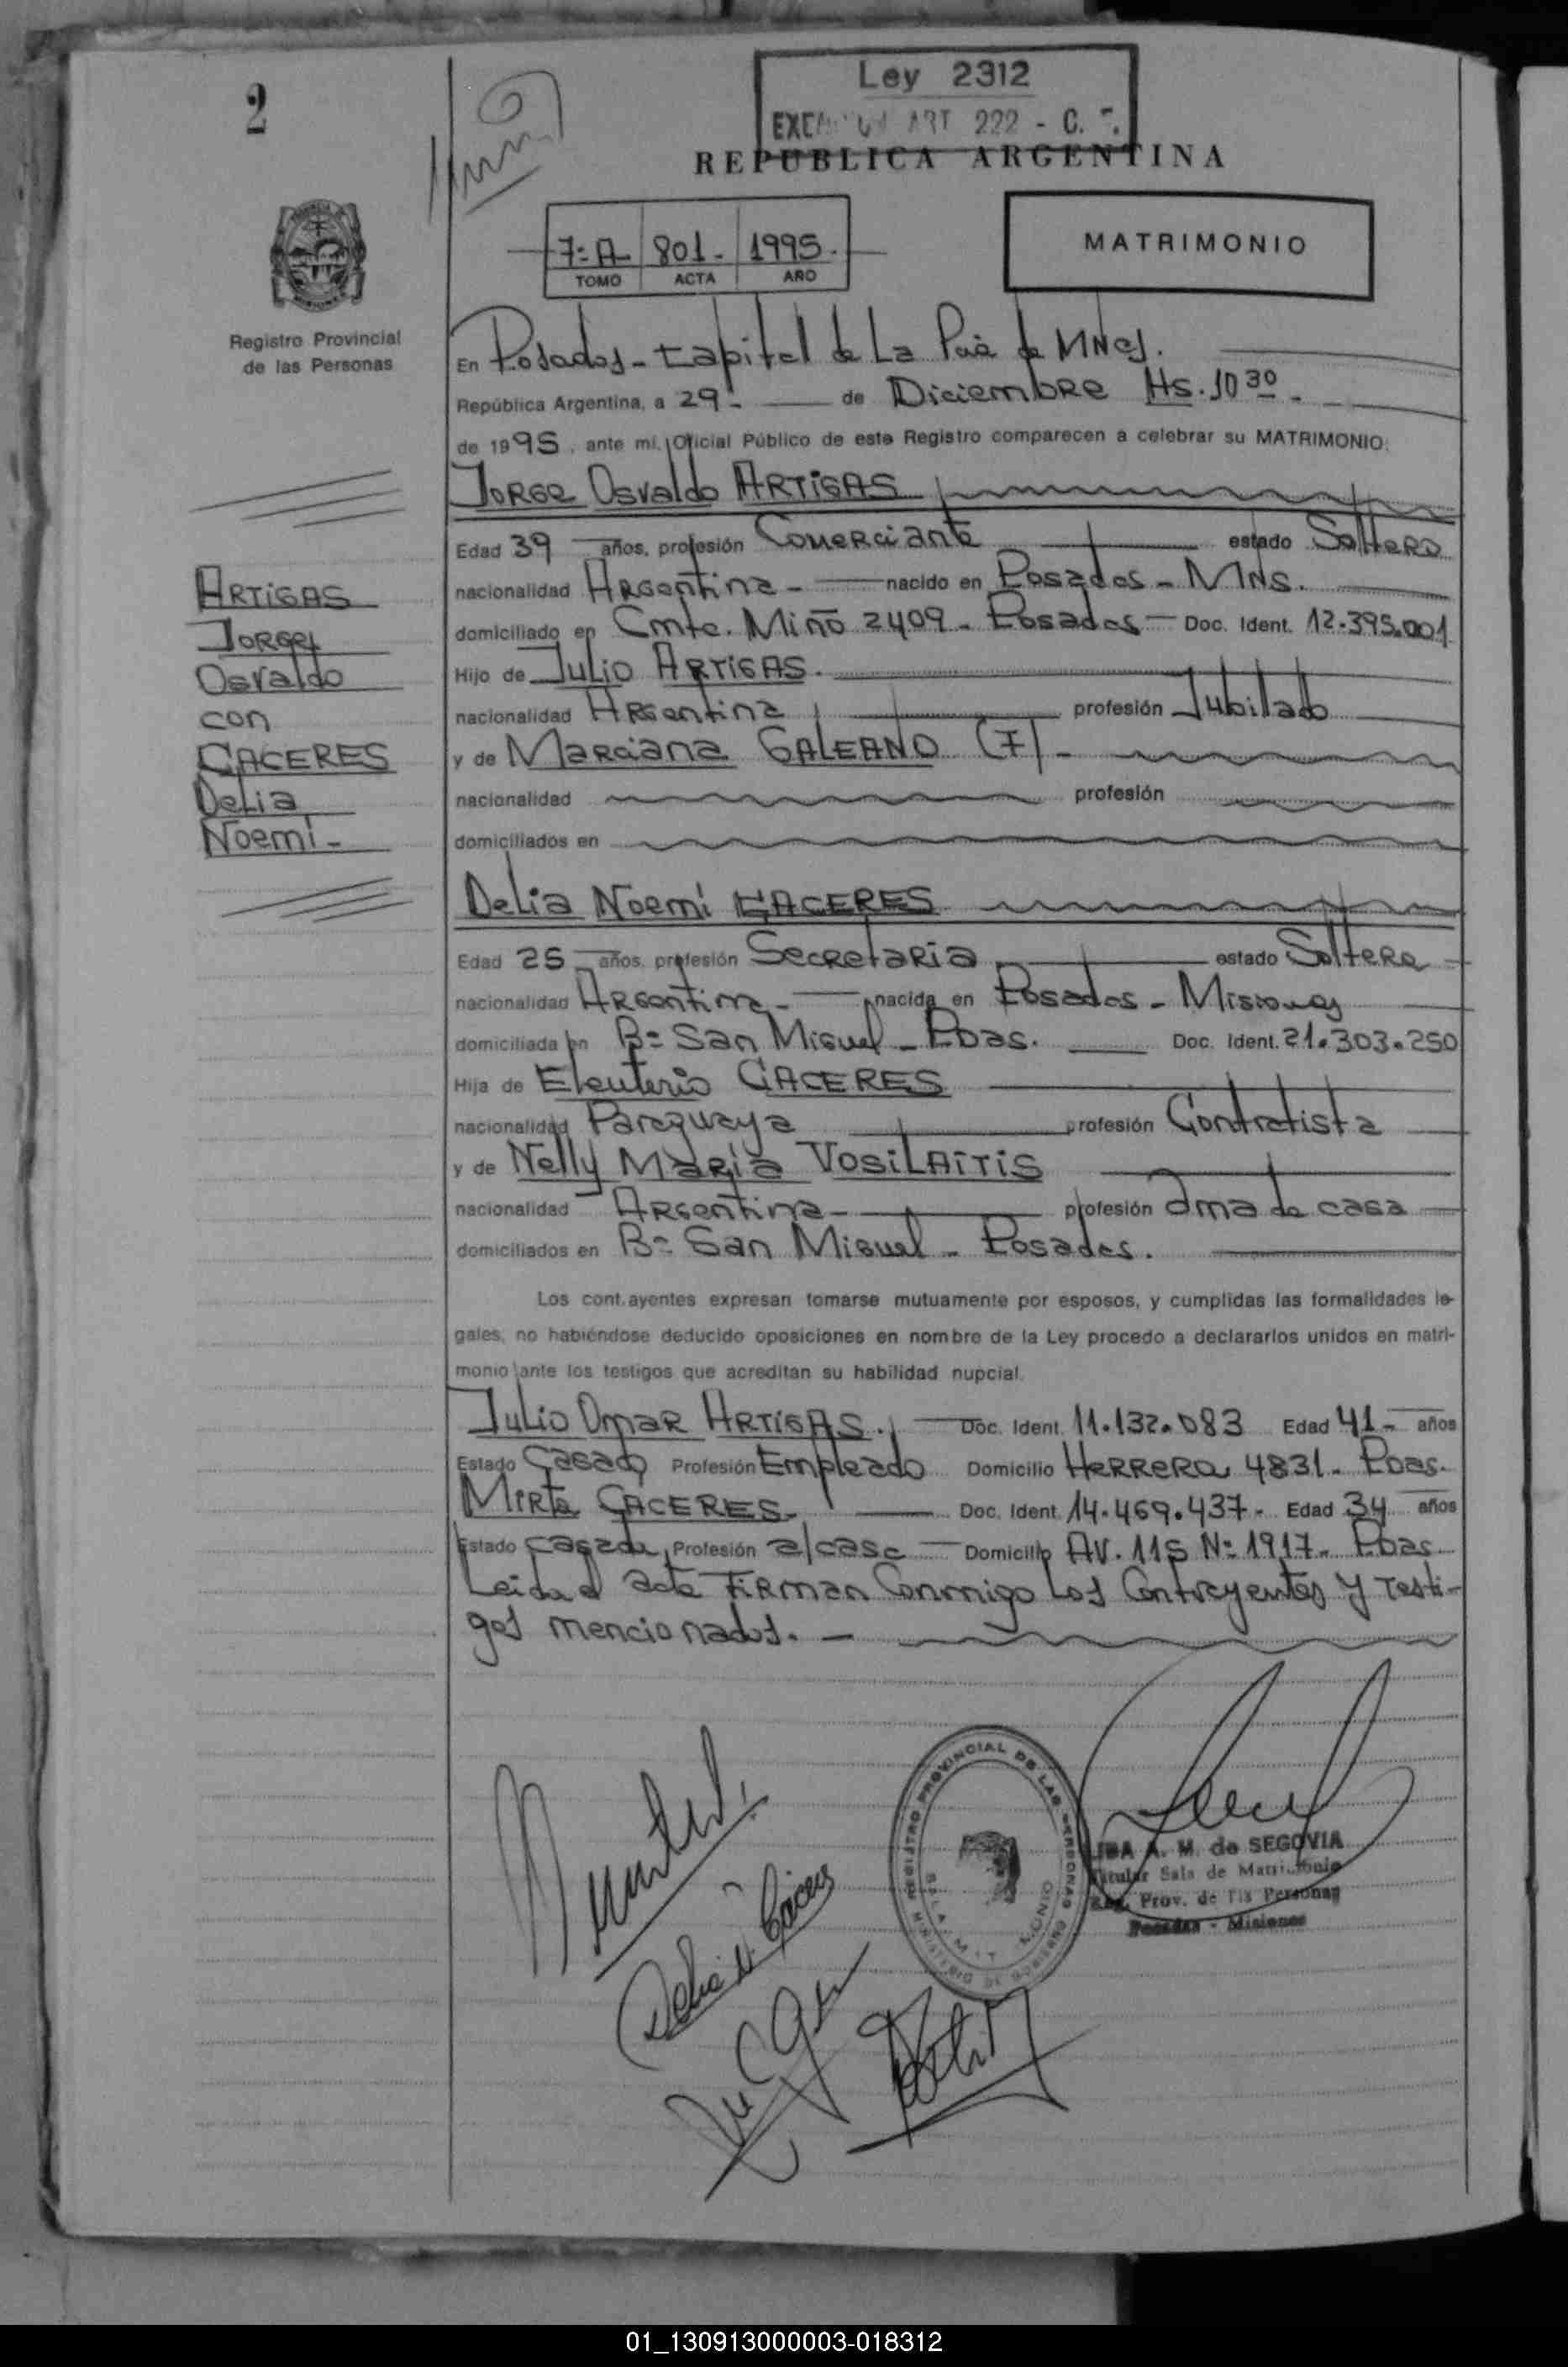 2
Ley 2312
ART 222 - C.
REPUBLICA ARGENTINA
7=A 801- 1995.
TOMO ACTA AÑO
MATRIMONIO
Registro Provincial
de las Personas
En Posadas - Capital de La Pcia de MNes.
República Argentina, a 29- de Diciembre Hs. 10 30 -
de 1995, ante mi, Oficial Público de este Registro comparecen a celebrar su MATRIMONIO:
Jorge Osvaldo ARTIGAS
Edad 39 años, profesión Comerciante estado Soltero
nacionalidad Argentina - nacido en Posadas - MNS.
domiciliado en Cmte. Miño 2409 - Posadas - Doc. Ident. 12.395.001
Hijo de Julio ARTIGAS.
nacionalidad Argentina profesión Jubilado
y de Marciana GALEANO (F) -
nacionalidad profesión
domiciliados en
ARTIGAS
Jorge
Osvaldo
con
CACERES
Delia
Noemí -
Delia Noemí CACERES
Edad 25 años, profesión Secretaria estado Soltera
nacionalidad Argentina - nacida en Posadas - Misiones
domiciliada en B= San Miguel - Pdas. Doc. Ident. 21.303.250
Hija de Eleuterio CACERES
nacionalidad Paraguaya profesión Contratista
y de Nelly María VOSILAITIS
nacionalidad Argentina - profesión Ama de casa
domiciliados en B= San Miguel - Posadas.
Los contrayentes expresan tomarse mutuamente por esposos, y cumplidas las formalidades le-
gales, no habiéndose deducido oposiciones en nombre de la Ley procedo a declararlos unidos en matri-
monio ante los testigos que acreditan su habilidad nupcial.
Julio Omar ARTIGAS. Doc. Ident. 11.132.083 Edad 41- años
Estado Casado Profesión Empleado Domicilio Herrera 4831 - Pdas.
Mirta CACERES Doc. Ident. 14.469.437- Edad 34 años
Estado casada Profesión a/casa Domicilio AV. 115 N= 1917 - Pdas
Leida el acta Firman Conmigo Los Contrayentes y Testi-
gos mencionados. -
REGISTRO PROVINCIAL DE LAS PERSONAS
MINISTERIO DE GOBIERNO
SALA
Delia N. Cáceres
A. M. de SEGOVIA
Titular Sala de Matrimonio
Reg. Prov. de las Personas
Posadas - Misiones
01_130913000003-018312